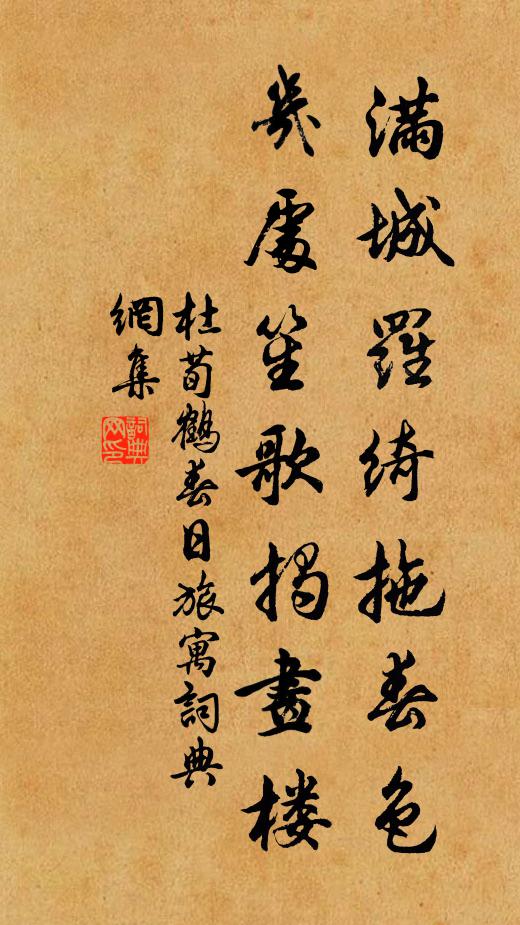 滿城羅綺拖春色
幾處笙歌揭畫樓
杜荀鶴春日旅寓詞典
網集
詞典
网印